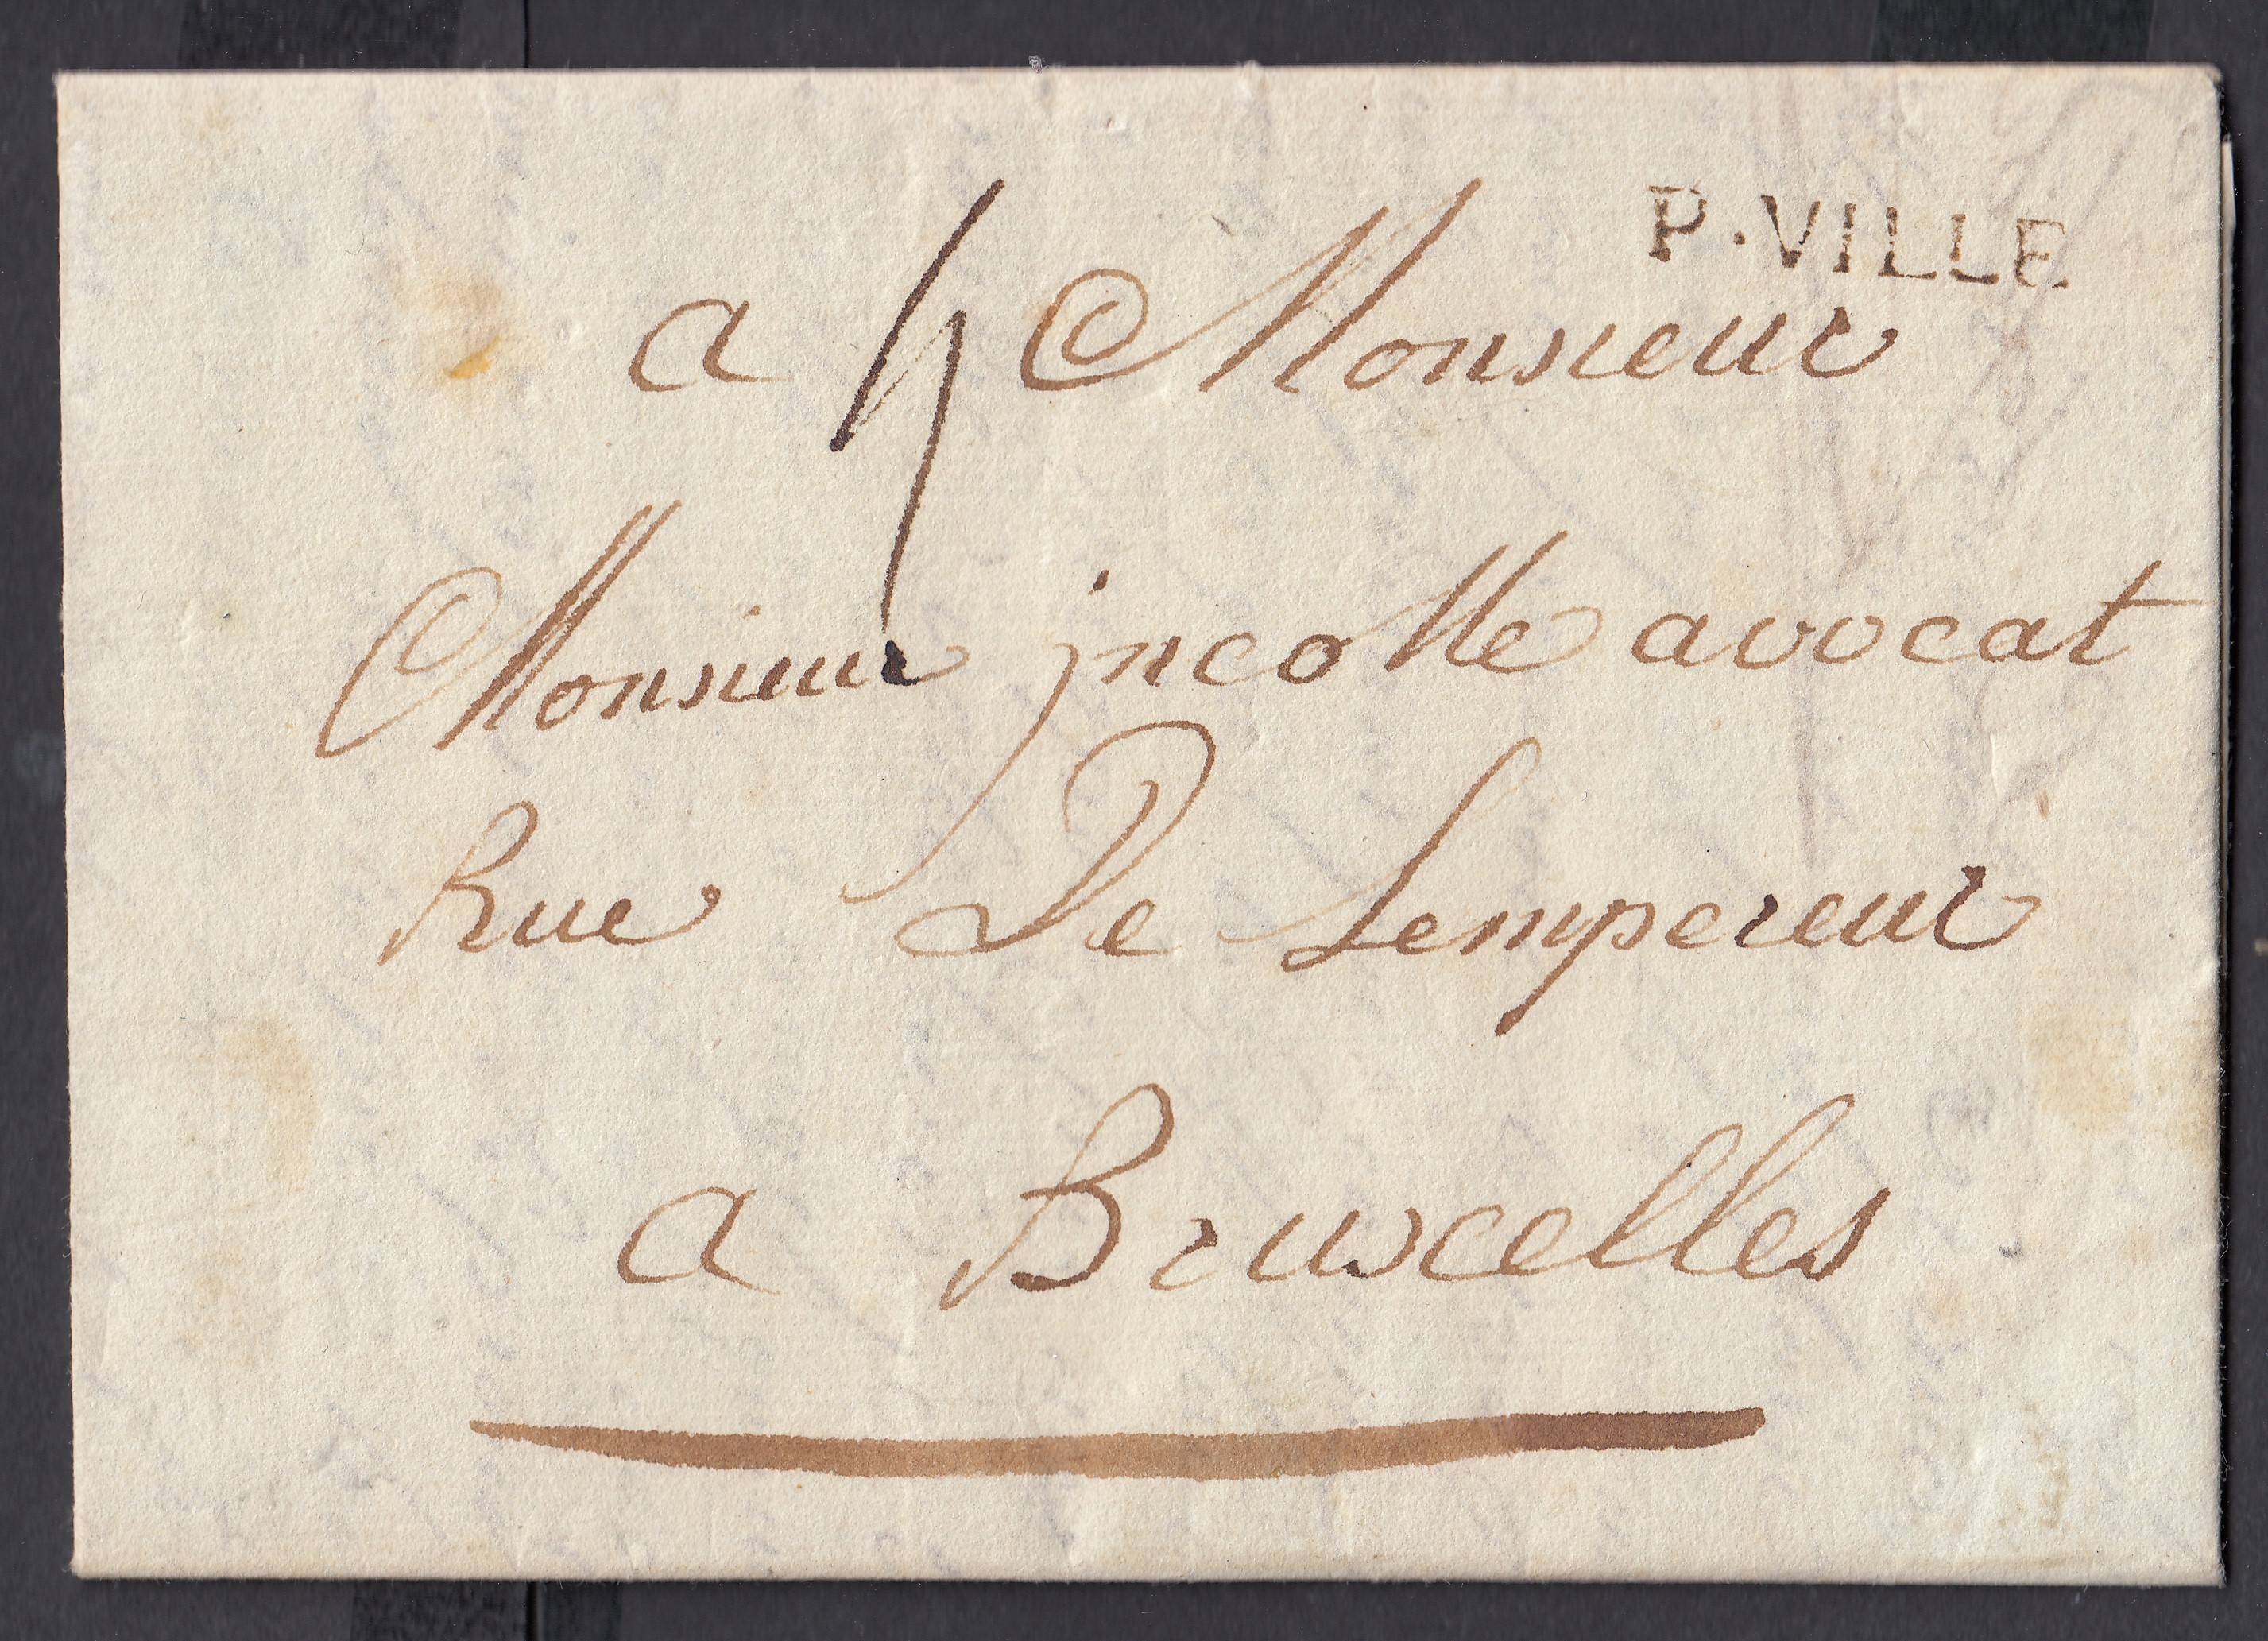 P.VILLE
a Monsieur
Monsieur jncolle avocat
Rue De Lempereur
a Bruxcelles